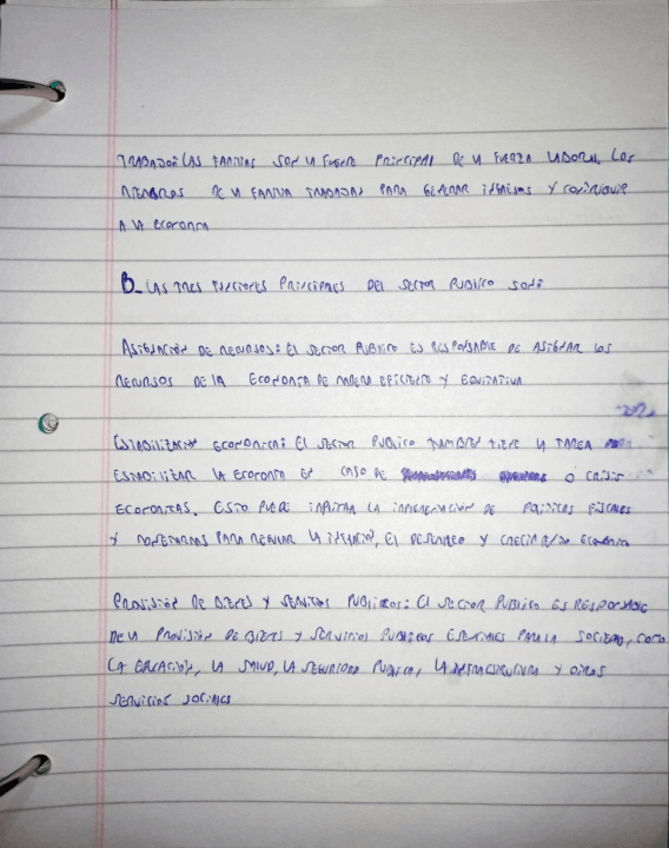 TRABAJO: LAS FAMILIAS SON LA FUENTE PRINCIPAL DE LA FUERZA LABORAL. LOS
MIEMBROS DE LA FAMILIA TRABAJAN PARA GENERAR INGRESOS Y CONTRIBUIR
A LA ECONOMIA
B- LAS TRES FUNCIONES PRINCIPALES DEL SECTOR PUBLICO SON:
ASIGNACIÓN DE RECURSOS: EL SECTOR PUBLICO ES RESPONSABLE DE ASIGNAR LOS
RECURSOS DE LA ECONOMIA DE MANERA EFICIENTE Y EQUITATIVA
ESTABILIZACION ECONOMICA: EL SECTOR PUBLICO TAMBIEN TIENE LA TAREA DE
ESTABILIZAR LA ECONOMIA EN CASO DE O CRISIS
ECONOMICAS. ESTO PUEDE IMPLICAR LA IMPLEMENTACIÓN DE POLITICAS FISCALES
Y MONETARIAS PARA REGULAR LA INFLACIÓN, EL DESEMPLEO Y CRECIMIENTO ECONOMICO
PROVISIÓN DE BIENES Y SERVICIOS PUBLICOS: EL SECTOR PUBLICO ES RESPONSABLE
DE LA PROVISIÓN DE BIENES Y SERVICIOS PUBLICOS ESENCIALES PARA LA SOCIEDAD, COMO
LA EDUCACIÓN, LA SALUD, LA SEGURIDAD PUBLICA, LA INFRAESTRUCTURA Y OTROS
SERVICIOS SOCIALES